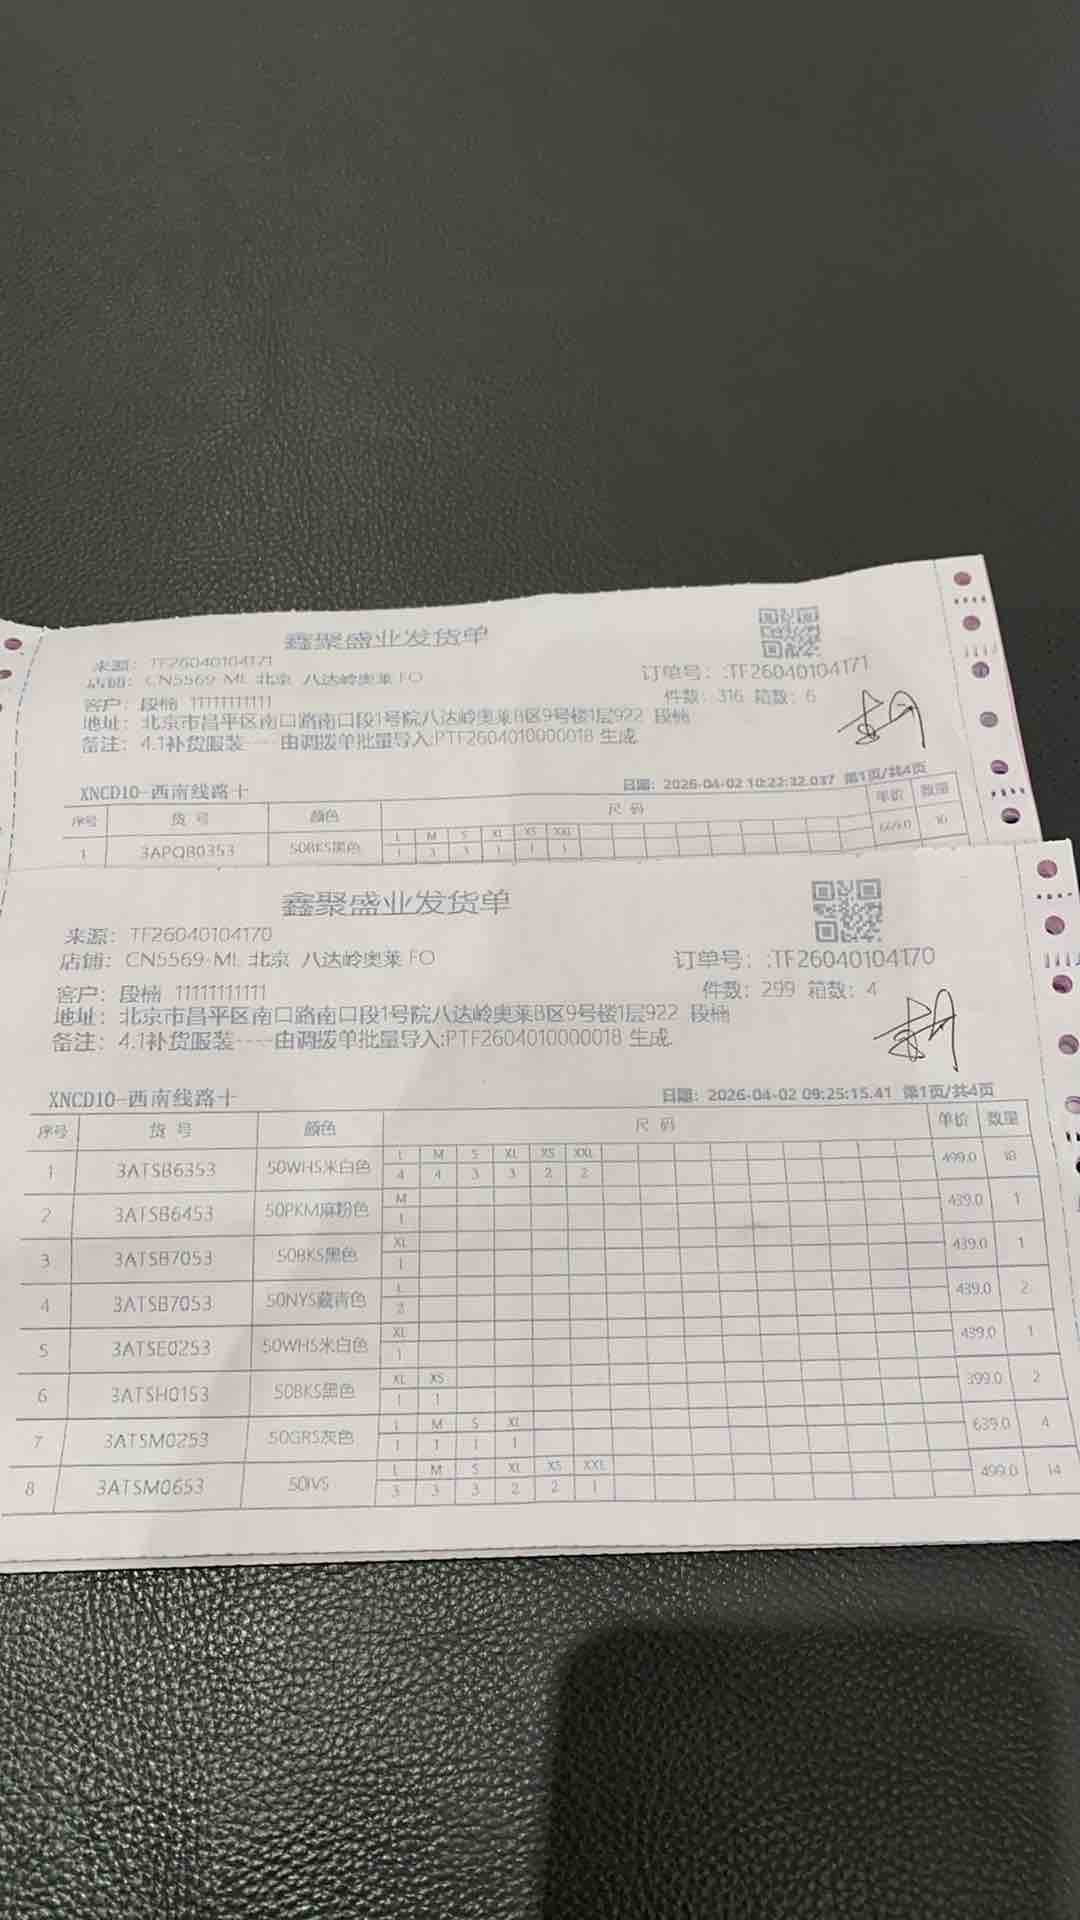 鑫聚盛业发货单
来源：TF26040104171
店铺：CN5569-ML 北京 八达岭奥莱 FO
订单号：:TF26040104171
客户：段楠 11111111111
件数：316 箱数：6
地址：北京市昌平区南口路南口段1号院八达岭奥莱B区9号楼1层922 段楠
备注：4.1补货服装----由调拨单批量导入:PTF2604010000018 生成
XNCD10-西南线路十
日期：2026-04-02 10:22:32.037 第1页/共4页
序号 货号 颜色 尺码 单价 数量
L M S XL XS XXL
1 3APQB0353 50BKS黑色 1 3 3 1 1 1 669.0 10
鑫聚盛业发货单
来源：TF26040104170
店铺：CN5569-ML 北京 八达岭奥莱 FO
订单号：:TF26040104170
客户：段楠 11111111111
件数：299 箱数：4
地址：北京市昌平区南口路南口段1号院八达岭奥莱B区9号楼1层922 段楠
备注：4.1补货服装----由调拨单批量导入:PTF2604010000018 生成
XNCD10-西南线路十
日期：2026-04-02 09:25:15.41 第1页/共4页
序号 货号 颜色 尺码 单价 数量
L M S XL XS XXL
1 3ATSB6353 50WHS米白色 4 4 3 3 2 2 499.0 18
M
2 3ATSB6453 50PKM麻粉色 1 439.0 1
XL
3 3ATSB7053 50BKS黑色 1 439.0 1
L
4 3ATSB7053 50NYS藏青色 2 439.0 2
XL
5 3ATSE0253 50WHS米白色 1 439.0 1
XL XS
6 3ATSH0153 50BKS黑色 1 1 399.0 2
L M S XL
7 3ATSM0253 50GRS灰色 1 1 1 1 639.0 4
L M S XL XS XXL
8 3ATSM0653 50IVS 3 3 3 2 2 1 499.0 14